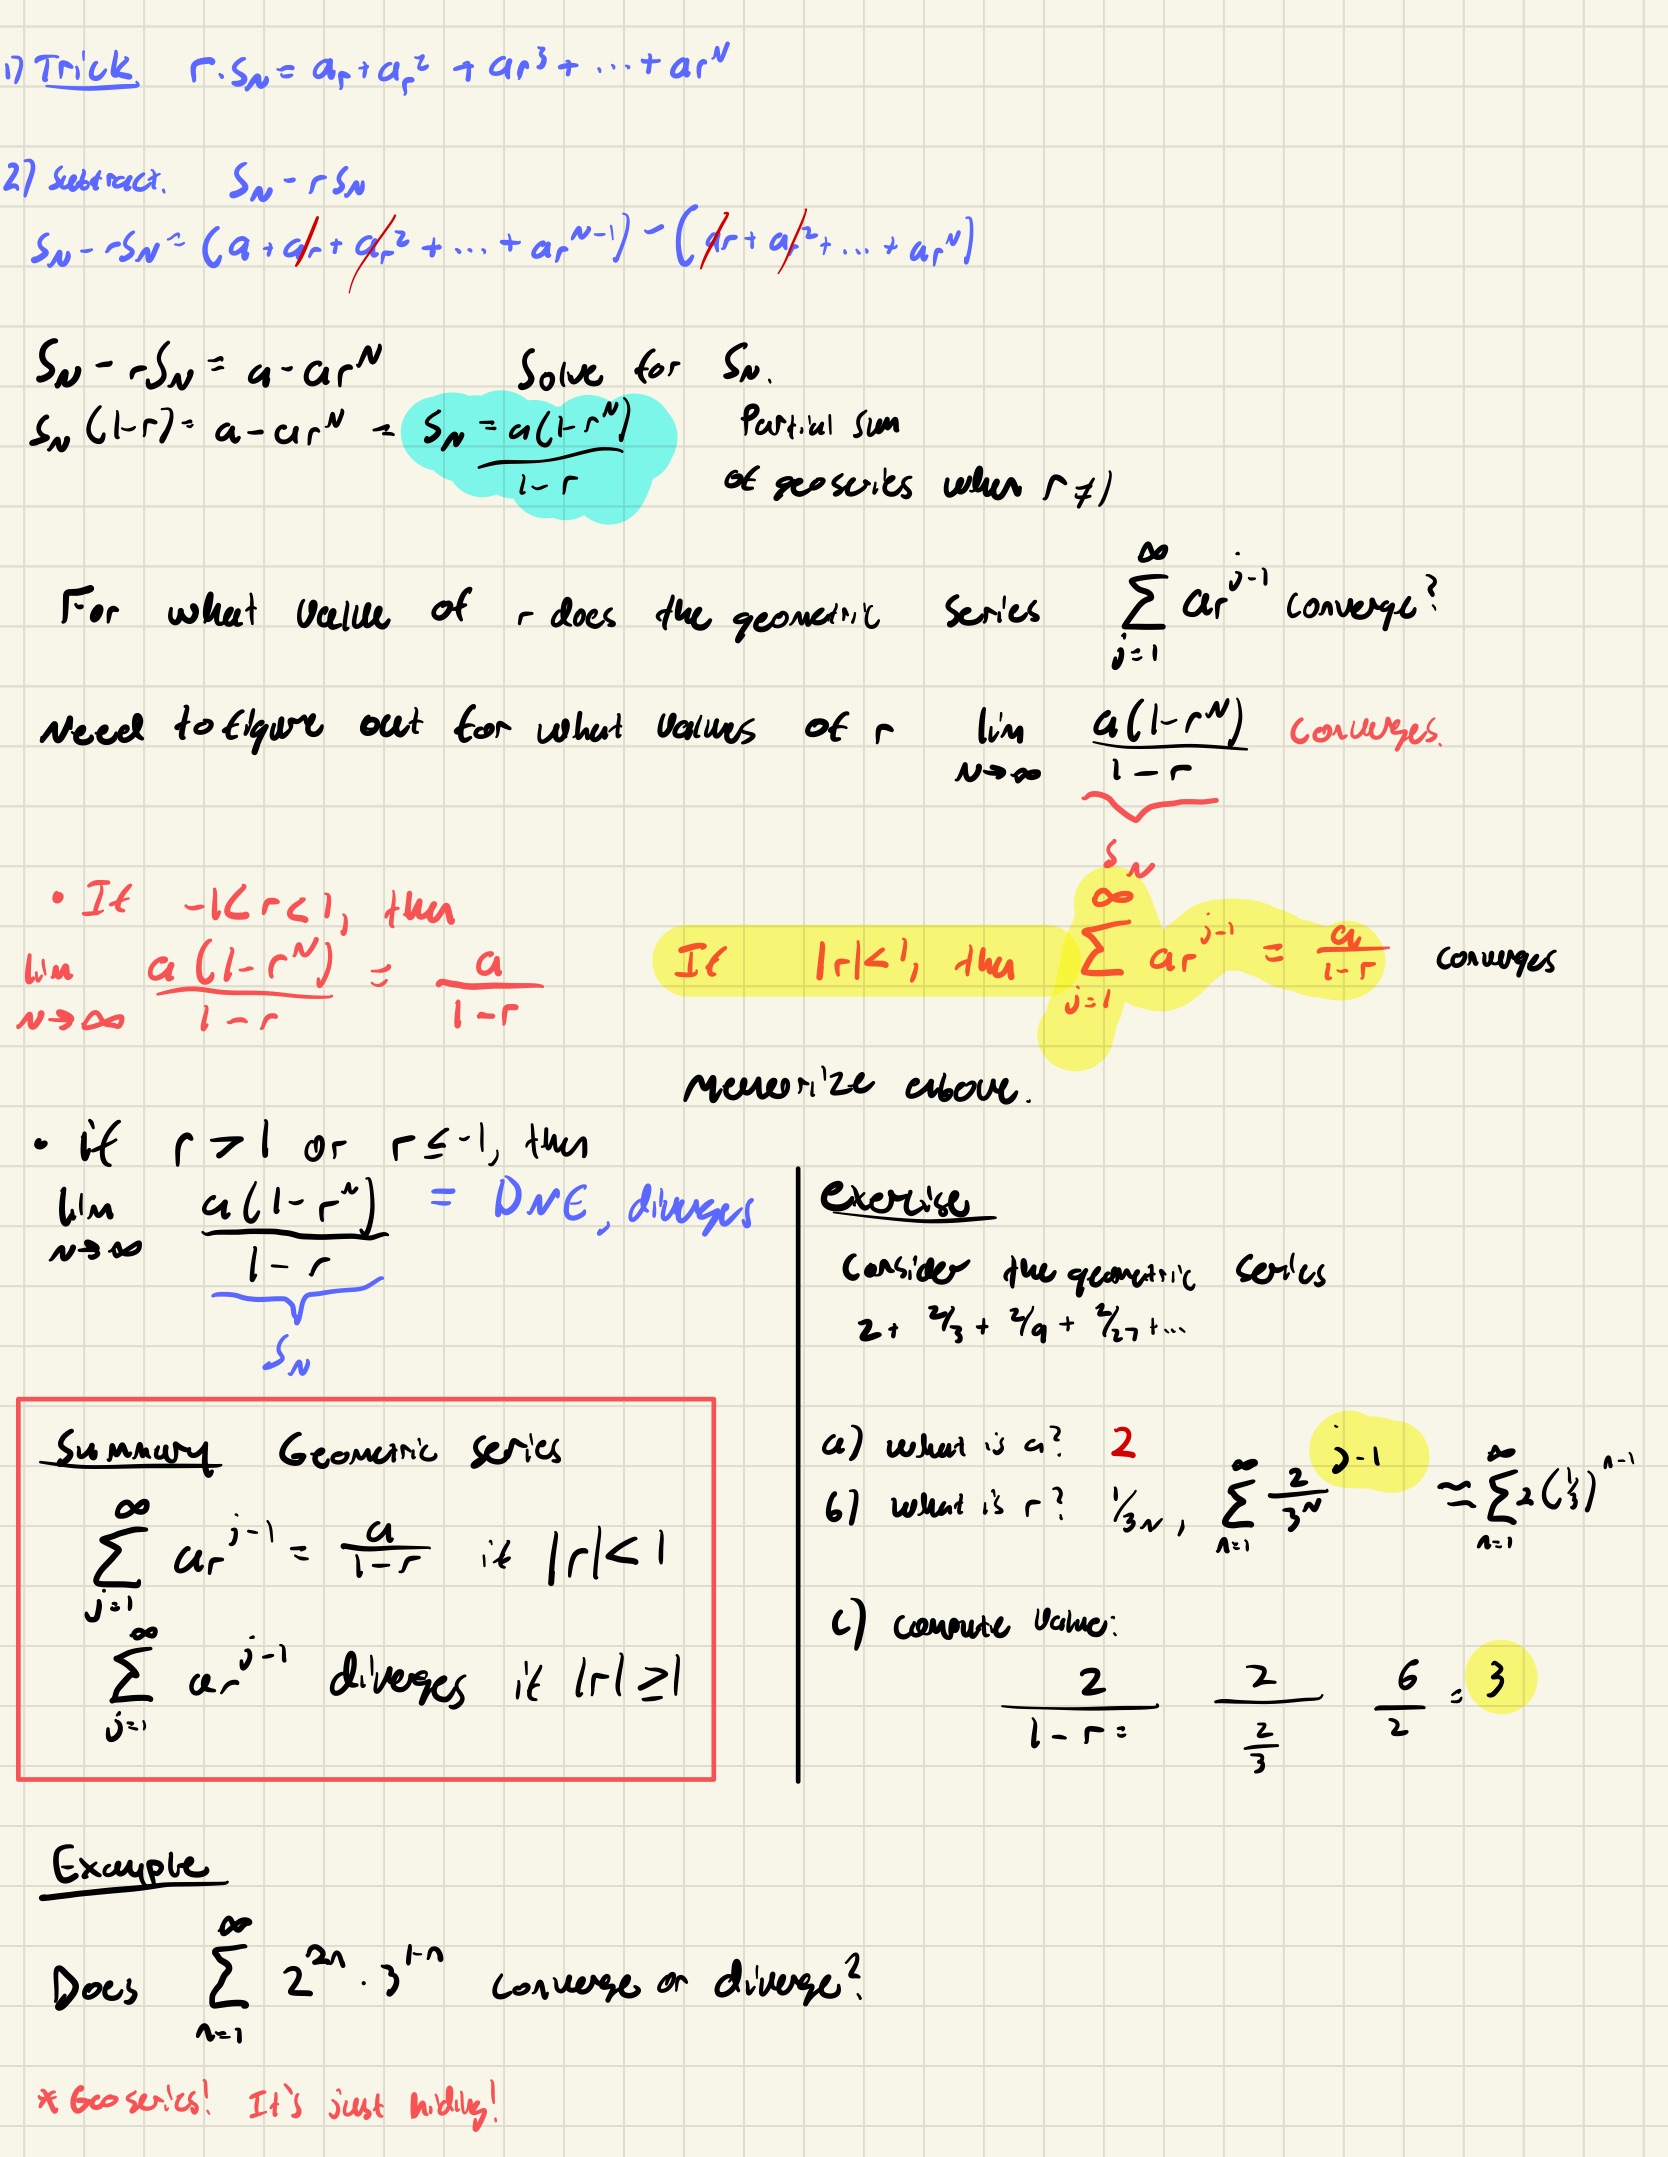 1) Trick r·S_N = ar + ar² + ar³ + ... + ar^N
2) subtract. S_N - rS_N
S_N - rS_N = (a + ar + ar² + ... + ar^(N-1)) - (ar + ar² + ... + ar^N)
S_N - rS_N = a - ar^N Solve for S_N.
S_N (1-r) = a - ar^N = S_N = a(1-r^N) / 1-r Partial sum
of geoseries when r ≠ 1
For what value of r does the geometric series ∑_{j=1}^∞ ar^(j-1) converge?
Need to figure out for what values of r lim_{N→∞} a(1-r^N) / 1-r converges.
S_N
• If -1< r < 1, then
lim_{N→∞} a(1-r^N) / 1-r = a / 1-r
If |r|<1, then ∑_{j=1}^∞ ar^(j-1) = a / 1-r converges
Memorize above.
• if r > 1 or r ≤ -1, then
lim_{N→∞} a(1-r^N) / 1-r = DNE, diverges
S_N
Summary Geometric series
∑_{j=1}^∞ ar^(j-1) = a / 1-r if |r| < 1
∑_{j=1}^∞ ar^(j-1) diverges if |r| ≥ 1
exercise
Consider the geometric series
2 + 2/3 + 2/9 + 2/27 + ...
a) what is a? 2
b) what is r? 1/3^N, ∑_{n=1}^∞ 2/3^N ^(j-1) ≈ ∑_{n=1}^∞ 2(1/3)^(n-1)
c) compute value:
2 / 1-r = 2 / (2/3) 6/2 = 3
Example
Does ∑_{n=1}^∞ 2^(2n) · 3^(1-n) converge or diverge?
* Geoseries! It's just hiding!